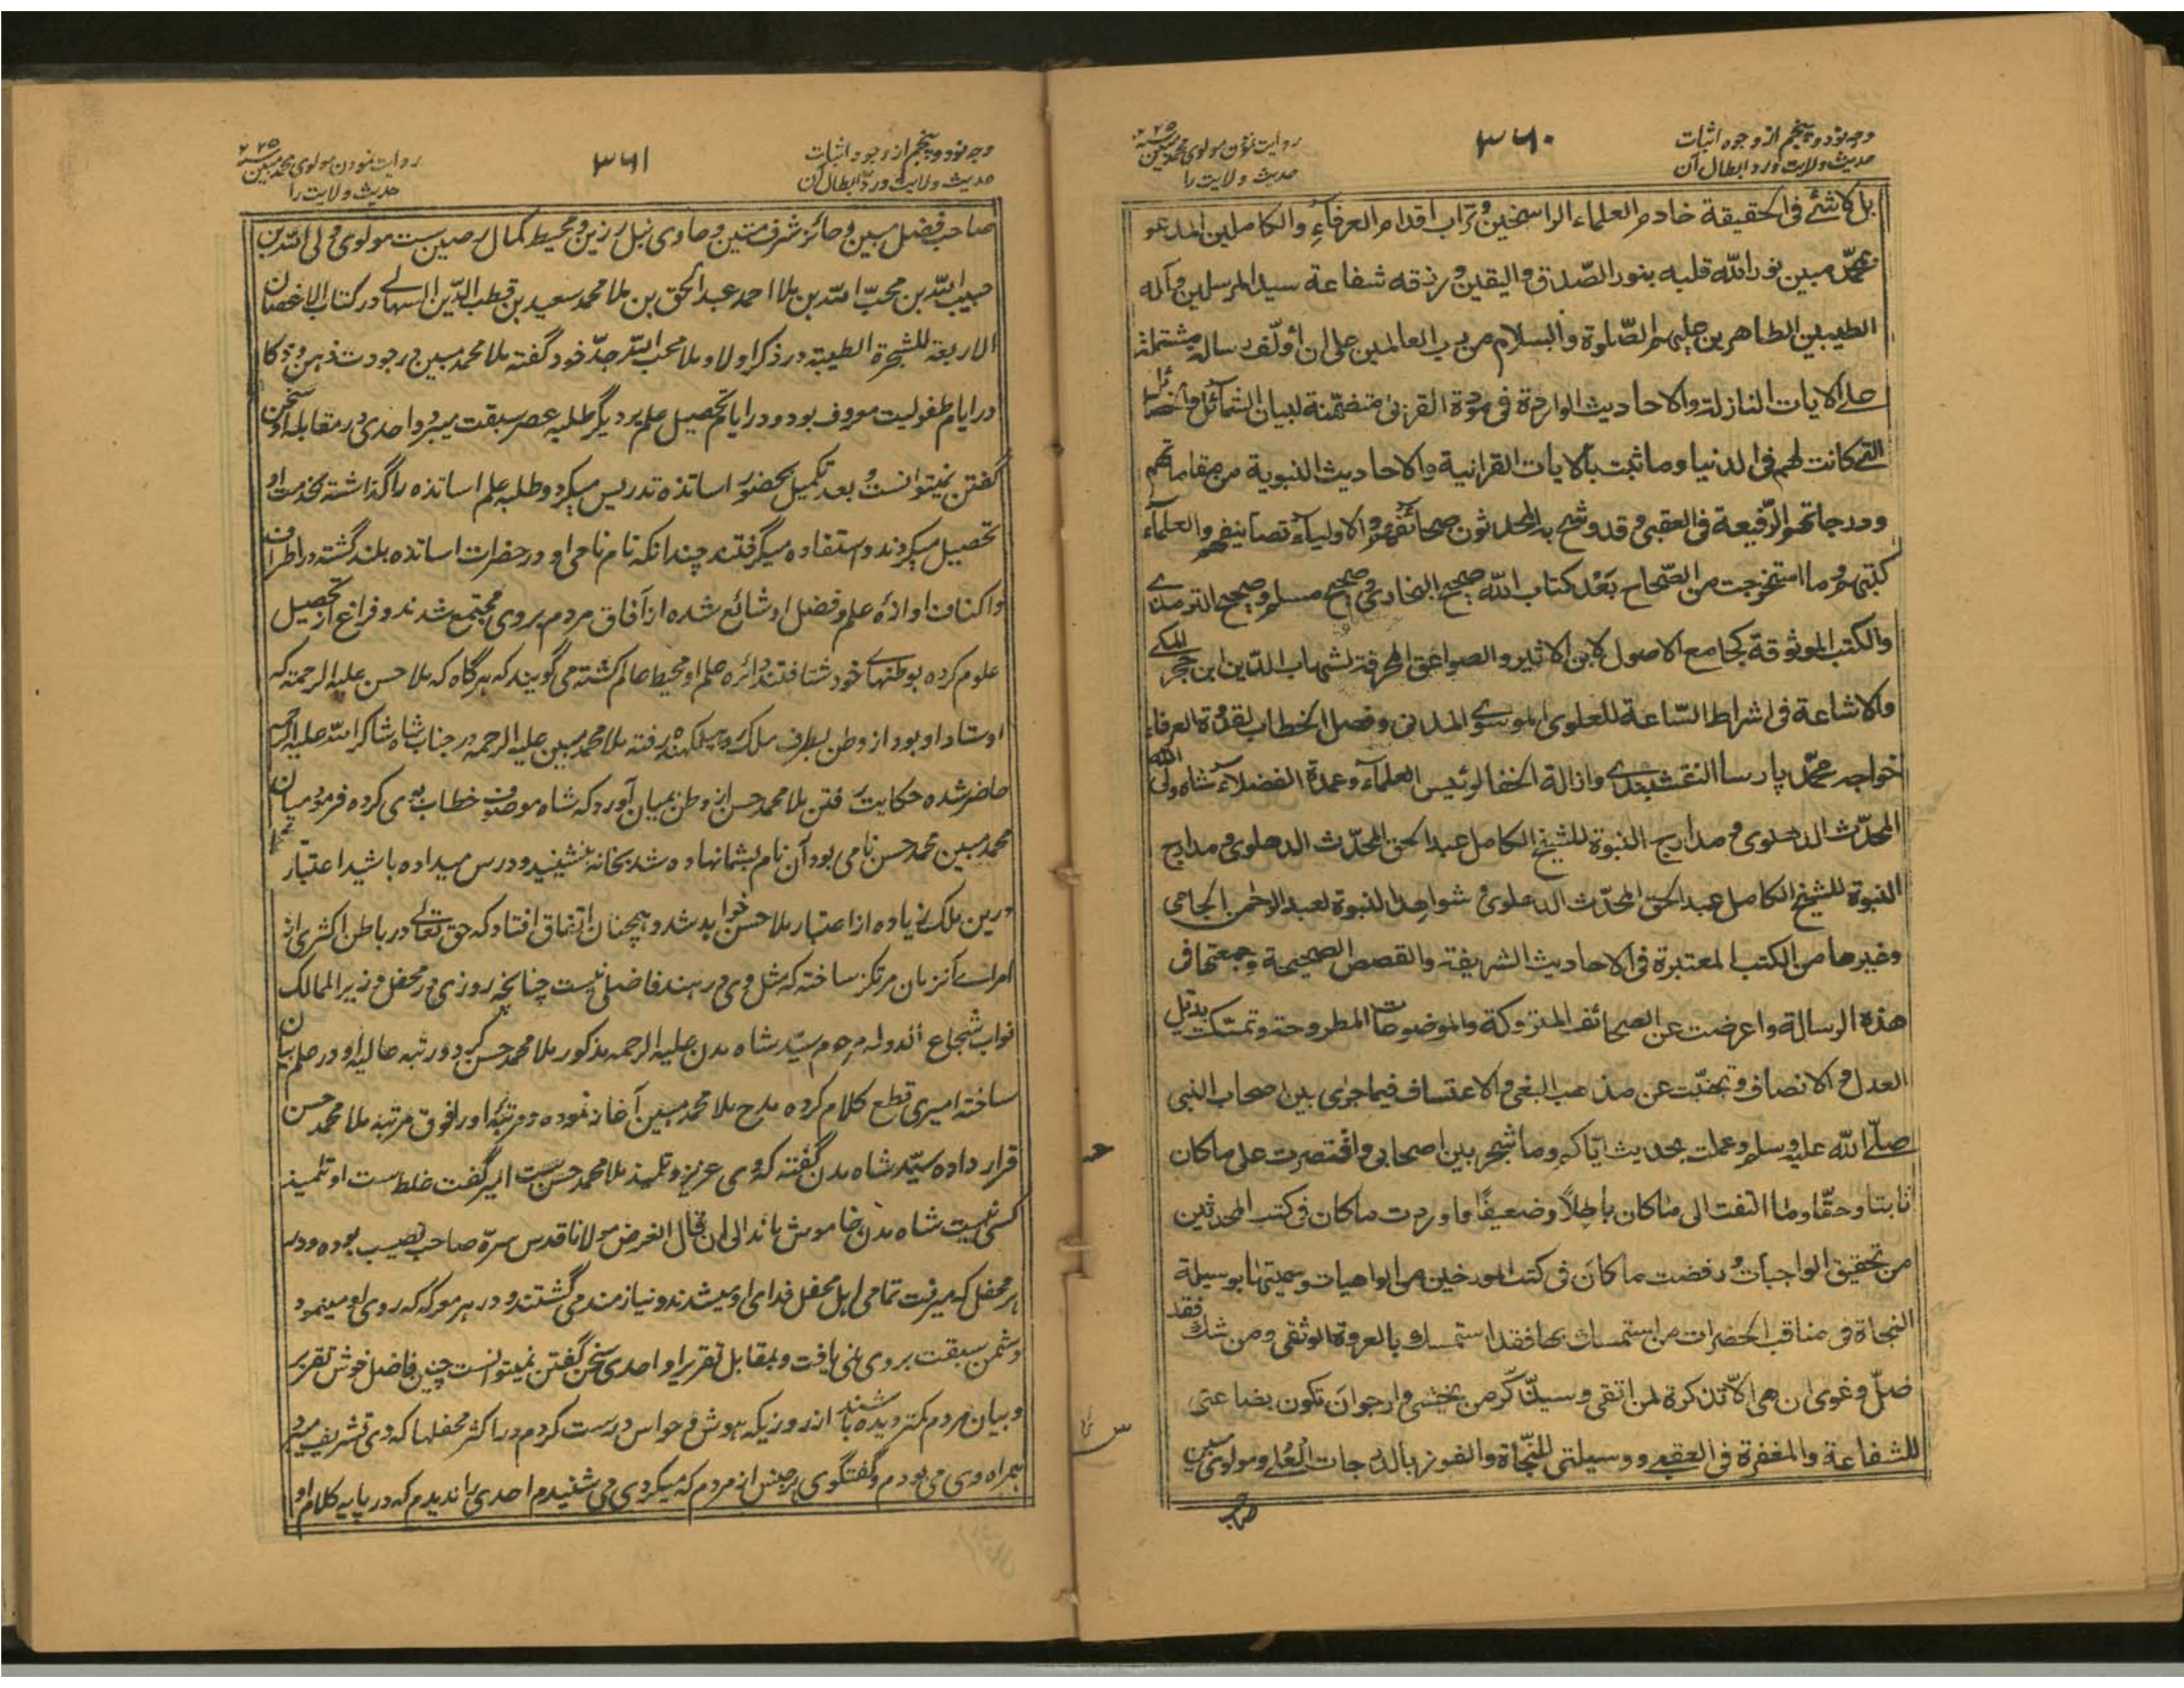 وجه نود و پنجم از وجوه اثبات
حدیث ولایت و رد ابطال آن
۳۶۰
روایت نمودن مولوی محمد مبین
حدیث ولایت را
بل كاشئ فی الحقیقة خادم العلماء الراسخین وتراب اقدام العرفاء والكاملین المدعو
بمحمّد مبین نور الله قلبه بنور الصّدق والیقین ورزقه شفاعة سید المرسلین وآله
الطیبین الطاهرین علیهم الصّلوة والسلام من رب العالمین علی ان أؤلّف رسالة مشتملة
علی الایات النازلة والاحادیث الواردة فی مودة القربی متضمّنة لبیان الشمائل والخصائل
التی كانت لهم فی الدنیا وما ثبت بالایات القرانیة والاحادیث النبویة من مقاماتهم
ودرجاتهم الرّفیعة فی العقبی وقد وشح به المحدثون صحائفهم والاولیاء تصانیفهم والعلماء
كتبهم وما استخرجت من الصّحاح بَعْد كتاب الله صحیح البخاری وصحیح مسلم وصحیح الترمذی
والكتب الموثوقة كجامع الاصول لابن الاثیر والصواعق المحرقة لشهاب الدّین ابن حجر المكی
والاشاعة فی اشراط السّاعة للعلوی الموسوی المدنی وفصل الخطاب لقدوة العرفاء
خواجه محمّد پارسا النقشبندی وازالة الخفا لرئیس العلماء وعمدة الفضلاء شاه ولی الله
المحدّث الدهلوی ومدارج النبوة للشیخ الكامل عبد الحق المحدّث الدهلوی ومدارج
النبوة للشیخ الكامل عبد الحق المحدّث الدهلوی وشواهد النبوة لعبد الرحمن الجامی
وغیرها من الكتب المعتبرة فی الاحادیث الشریفة والقصص الصحیحة وجمعتها فی
هذه الرسالة واعرضت عن الصحائف المتروكة والموضوعات المطروحة وتمسّكت بذیل
العدل والانصاف وتجنّبت عن مذهب البغی والاعتساف فیما جری بین صحاب النبی
صلّی الله علیه وسلم وعملت بحدیث ایّاكم وما شجر بین اصحابی واقتصرت علی ما كان
ثابتا وحقّا وما التفت الی ما كان باطلًا وضعیفًا واوردت ما كان فی كتب المحدثین
من تحقیق الواجبات ورفضت ما كان فی كتب المورخین من الواهیات وسمیتها بوسیلة
النجاة فی مناقب الحضرات من استمسك بها فقد استمسك بالعروة الوثقی ومن شك فقد
ضلّ وغوی ان هی الّا تذكرة لمن اتقی وسیذّكّر من یخشی وارجوان تكون بضاعتی
للشفاعة والمغفرة فی العقبی ووسیلتی للنجاة والفوز بالدرجات العُلی ومولوی مبین
صاحب
وجه نود و پنجم از وجوه اثبات
حدیث ولایت و رد ابطال آن
۳۶۱
روایت نمودن مولوی محمد مبین
حدیث ولایت را
صاحب فضل مبین و حائز شرف متین و حاوی نبل رزین و محیط كمال رصین ست مولوی ولی الله بن
حبیب الله بن محبّ الله بن ملا احمد عبد الحق بن ملا محمد سعید بن قطب الدّین السهالی در كتاب الاغصان
الاربعة للشجرة الطیبة در ذكر اولاد ملا محب الله جدّ خود گفته ملا محمد مبین در جودت ذهن و ذكا
در ایام طفولیت معروف بود و در ایام تحصیل علم بر دیگر طلبه عصر سبقت میبرد احدی در مقابله او سخن
گفتن نمیتوانست و بعد تكمیل بحضور اساتذه تدریس میكرد و طلبه علم اساتذه را گذاشته بخدمت او
تحصیل میكردند و استفاده میگرفتند چندانكه نام نامی او در حضرات اساتذه بلند گشته در اطراف
و اكناف اوازۀ علم و فضل او شائع شده از آفاق مردم بروی مجتمع شدند و فراغ از تحصیل
علوم كرده بوطنهای خود شتافتند دائره علم او محیط عالم گشته می گویند كه هرگاه كه ملا حسن علیه الرحمة كه
اوستاد او بود از وطن بطرف ملك روهیلكهنڈ رفته ملا محمد مبین علیه الرحمه در جناب شاه شاكر الله علیه الرحمه
حاضر شده حكایت رفتن ملا محمد حسن از وطن بمیان آورد كه شاه موصوف خطاب بوی كرده فرمود میان
محمد مبین محمد حسن نامی بود آن نام بشما نهاده شد بخانه بنشینید و درس میداده باشید اعتبار شما
درین ملك زیاده از اعتبار ملا حسن خواهد شد و همچنان اتفاق افتاد كه حق تعالی در باطن اكثری از
امرای آنزمان مرتكز ساخته كه مثل وی در هند فاضلی نیست چنانچه روزی در محفل وزیر الممالك
نواب شجاع الدوله مرحوم سیّد شاه مدن علیه الرحمه مذكور ملا محمد حسن كرد و رتبه عالیه او در علم بیان
ساخته امیری قطع كلام كرده مدح ملا محمد مبین آغاز نموده و مرتبۀ او را فوق مرتبه ملا محمد حسن
قرار داده سیّد شاه مدن گفته كه وی عزیز و تلمیذ ملا محمد حسن ست امیر گفت غلط ست او تلمیذ
كسی نیست شاه مدن خاموش ماند الی ان قال الغرض مولانا قدس سرّه صاحب نصیب بوده و در
هر محفل كه میرفت تمامی اهل محفل فدای او میشدند و نیازمند می گشتند و در هر معركه كه روی او مینمود
دشمن سبقت بروی نمی یافت و بمقابل تقریر او احدی سخن گفتن نمیتوانست چنین فاضل خوش تقریر
و بیان مردم كمتر دیده باشند از روزیكه هوش و حواس درست كردم در اكثر محفلها كه وی تشریف میبرد
همراه وی می بودم و گفتگوی هر جنس از مردم كه میكردی می شنیدم احدی را ندیدم كه در پایه كلام او